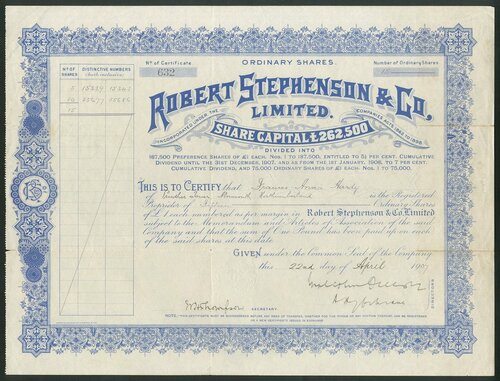 Nº OF SHARES
DISTINCTIVE NUMBERS
(both inclusive)
Nº of Certificate
632
ORDINARY SHARES.
Number of Ordinary Shares
5
10
15
ROBERT STEPHENSON & CO,
LIMITED.
INCORPORATED UNDER THE COMPANIES ACTS 1862 TO 1898.
SHARE CAPITAL £262,500
DIVIDED INTO
187,500 PREFERENCE SHARES OF £1 EACH, Nos. 1 TO 187,500, ENTITLED TO 5½ PER CENT. CUMULATIVE
DIVIDEND UNTIL THE 31ST DECEMBER, 1907, AND AS FROM THE 1ST JANUARY, 1908, TO 7 PER CENT.
CUMULATIVE DIVIDEND, AND 75,000 ORDINARY SHARES OF £1 EACH, Nos. 1 TO 75,000.
THIS IS TO CERTIFY that Frances Hardy
is the Registered
Proprietor of Fifteen Ordinary Shares
of £1 each numbered as per margin in Robert Stephenson & Co. Limited
subject to the Memorandum and Articles of Association of the said
Company and that the sum of One Pound has been paid up on each
of the said shares at this date.
GIVEN under the Common Seal of the Company
this 22nd day of April 1907
DIRECTORS
SECRETARY
NOTE:-THIS CERTIFICATE MUST BE SURRENDERED BEFORE ANY DEED OF TRANSFER, WHETHER FOR THE WHOLE OR ANY PORTION THEREOF, CAN BE REGISTERED
OR A NEW CERTIFICATE ISSUED IN EXCHANGE.